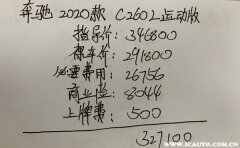 奔驰2020款 C260L运动版
指导价:346800
裸车价:291800
必要费用:26756
商业险:8044
上牌费:500
327100
www.icauto.com.cn